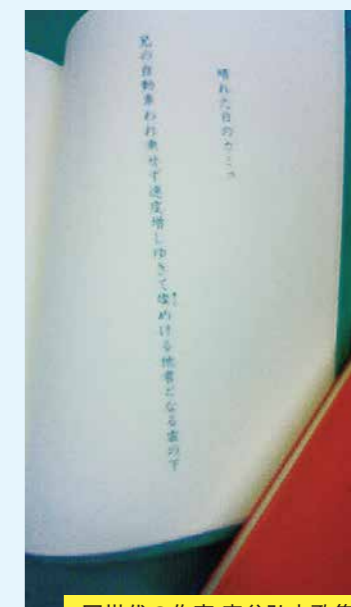 晴れた日のカミュ
兄の自動車われ乗せず速度増しゆきて煌めける他者となる雲の下